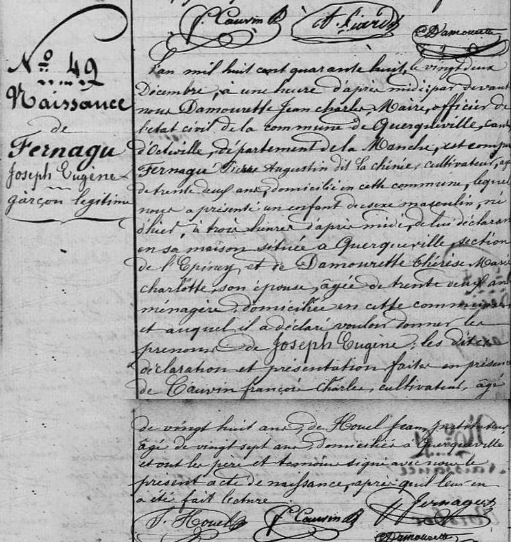 f. Cauvin
A. Liard
C Damourette
No. 49
Naissance
de
Fernagu
Joseph Eugene
garçon legitime
L'an mil huit cent quarante huit, le vingt deux
Décembre, à une heure d'après midi, par devant
nous Damourette Jean charles, Maire, officier de
l'état civil de la commune de Querqueville, can
d'Octeville, département de la Manche, est comp
Fernagu Pierre Augustin dit la chênée, cultivateur, ag
de trente deux ans, domicilié en cette commune, lequel
nous a présenté un enfant de sexe masculin, né
d'hier, à trois heures d'après midi, de lui déclarant
en sa maison située à Querqueville section
de l'Epiney, et de Damourette thérèse Marie
charlotte son épouse, agée de trente deux ans
ménagère, domiciliée en cette commune
et auquel il a déclaré vouloir donner les
prenoms de Joseph Eugene; les dites
déclaration et présentation faites en présence
de Cauvin françois Charles, cultivateur, âgé
de vingt huit ans, de Houel jean
âgé de vingt sept ans domiciliés à Querqueville
et ont les père et témoins signé avec nous le
présent acte de naissance, après qu'il leur en
a été fait lecture
J. Houel
f. Cauvin
fernagu
C Damourette